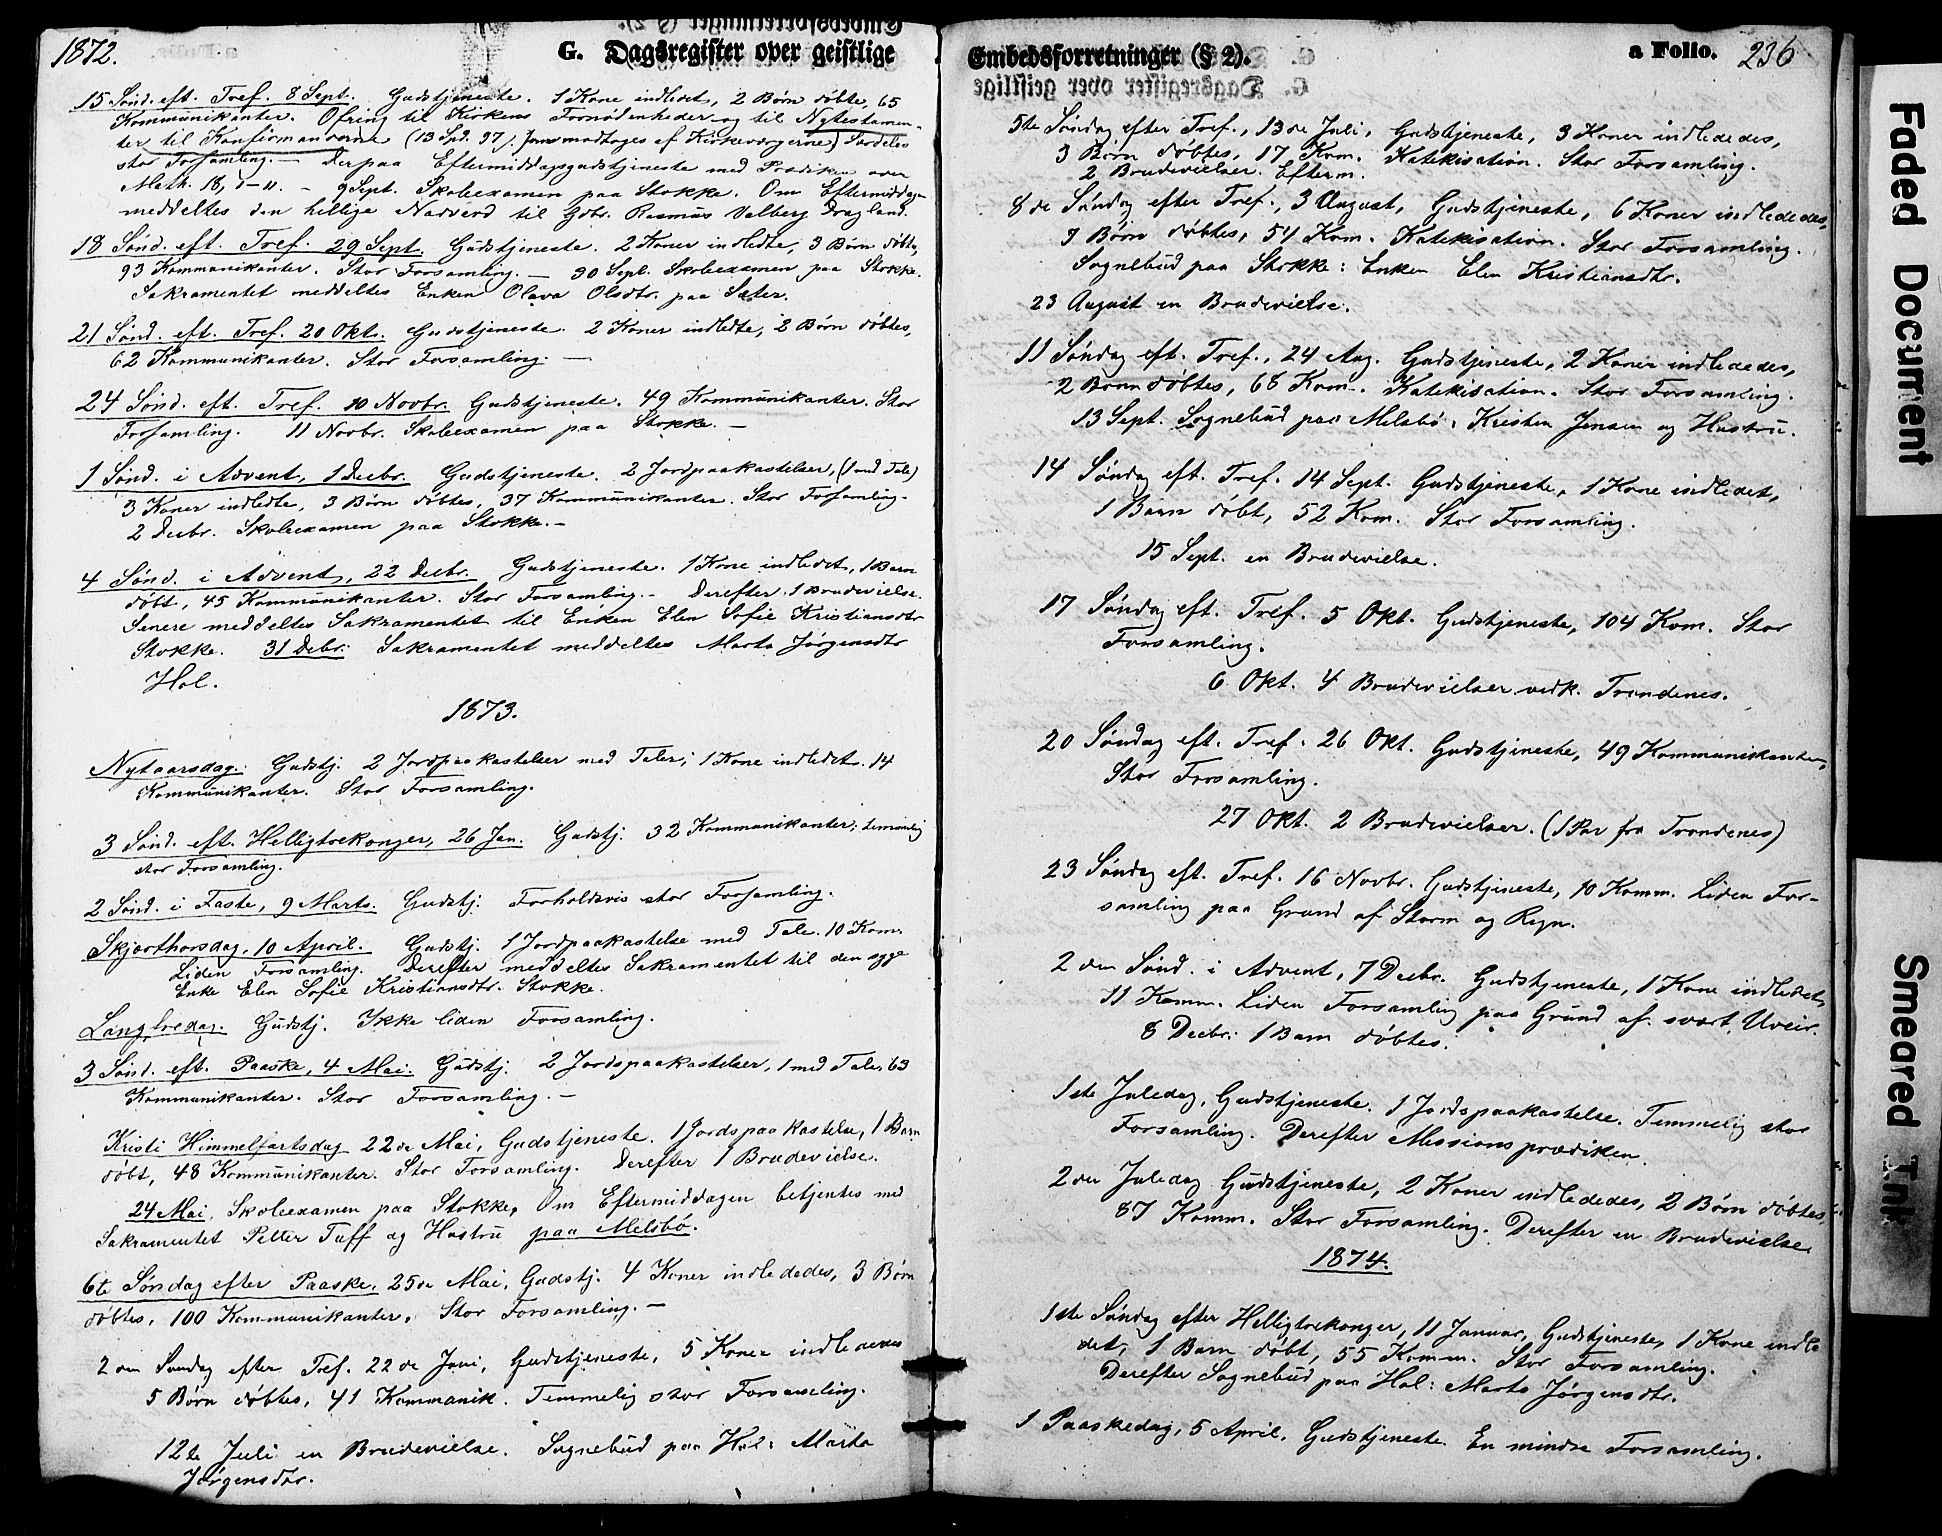 1872.
G. Dagsregister over geistlige
15 Sønd. eft. Tref. 8 Sept. Gudstjeneste. 1 Kone indledet, 2 Børn døbte, 65
Kommunikanter. Ofring til Kirkens Fornødenheder og til Nytestamen-
ter til Konfirmanderne (13 Spd. 97 / modtoges af Kirkeværgerne)
stor Forsamling. — Derpaa Eftermiddagsgudstjeneste med Prædiken over
Math. 18, 1-11. — 9 Sept. Skoleexamen paa Stokke. Om Eftermiddagen
meddeltes den hellige Nadverd til Gdbr. Rasmus Valberg Dragland.
18 Sønd. eft. Tref. 29 Sept. Gudstjeneste. 2 Koner indledte, 3 Børn døbte,
93 Kommunikanter. Stor Forsamling. — 30 Sept. Skoleexamen paa Stokke.
Sakramentet meddeltes Enken Olava Olsdtr. paa Sæter.
21 Sønd. eft. Tref. 20 Okt. Gudstjeneste. 2 Koner indledte, 2 Børn døbtes,
62 Kommunikanter. Stor Forsamling. —
24 Sønd. eft. Tref. 10 Novbr. Gudstjeneste. 49 Kommunikanter. Stor
Forsamling. 11 Novbr. Skoleexamen paa Stokke. —
1 Sønd. i Advent, 1 Decbr. Gudstjeneste. 2 Jordpaakastelser, (1 med Tale)
3 Koner indledte, 3 Børn døbtes, 37 Kommunikanter. Stor Forsamling.
2 Decbr. Skoleexamen paa Stokke. —
4 Sønd. i Advent, 22 Decbr. Gudstjeneste. 1 Kone indledet, 1 Barn
døbt, 45 Kommunikanter. Stor Forsamling. — Derefter 1 Brudevielse.
Senere meddeltes Sakramentet til Enken Elen Sofie Kristiansdtr
Stokke. 31 Debr. Sakramentet meddeltes Marta Jørgensdtr
Hol.
1873.
Nytaarsdag. Gudstj. 2 Jordpaakastelser med Taler; 1 Kone indledet. 14
Kommunikanter. Stor Forsamling.
3 Sønd. eft. Helligtrekonger, 26 Jan. Gudstj. 32 Kommunikanter; temmelig
stor Forsamling.
2 Sønd. i Faste, 9 Marts. Gudstj. Forholdsvis stor Forsamling.
Skjærthorsdag, 10 April. Gudstj. 1 Jordpaakastelse med Tale. 10 Kom.
Liden Forsamling. Derefter meddeltes Sakramentet til den syge
Enke Elen Sofie Kristiansdtr. Stokke.
Langfredag. Gudstj. Ikke liden Forsamling.
3 Sønd. eft. Paaske, 4 Mai. Gudstj. 2 Jordspaakastelser, 1 med Tale, 63
Kommunikanter. Stor Forsamling. —
Kristi Himmelfartsdag 22de Mai, Gudstjeneste. 1 Jordspaakastelse, 1 Barn
døbt, 48 Kommunikanter. Stor Forsamling. Derefter 1 Brudevielse.
24 Mai, Skoleexamen paa Stokke, Om Eftermiddagen betjentes med
Sakramentet Petter Tuff og Hustru paa Melsbø.
6te Søndag efter Paaske, 25de Mai, Gudstj. 4 Koner indlededes, 3 Børn
døbtes, 100 Kommunikanter, Stor Forsamling. —
2den Søndag efter Tref. 22de Juni, Gudstjeneste, 5 Koner indlededes
5 Børn døbtes, 41 Kommunik. Temmelig stor Forsamling.
12te Juli en Brudevielse. Sognebud paa Hol: Marta
Jørgensdtr.
Embedsforretninger (§ 2).
a Folio. 236
5te Søndag efter Tref., 13de Juli, Gudstjeneste, 3 Koner indlededes,
3 Børn døbtes, 17 Kom. Katekisation. Stor Forsamling.
2 Brudevielser. Efterm.
8de Søndag efter Tref., 3 August, Gudstjeneste, 6 Koner indlededes,
9 Børn døbtes, 54 Kom. Katekisation. Stor Forsamling.
Sognebud paa Stokke: Enken Elen Kristiansdtr.
23 August en Brudevielse.
11 Søndag eft. Tref., 24 Aug. Gudstjeneste, 2 Koner indlededes,
2 Børn døbtes, 68 Kom. Katekisation. Stor Forsamling.
13 Sept. Sognebud paa Melsbø: Kristen Jensen og Hustru.
14 Søndag eft. Tref. 14 Sept. Gudstjeneste, 1 Kone indledet,
1 Barn døbt, 52 Kom. Stor Forsamling.
15 Sept. en Brudevielse.
17 Søndag eft. Tref. 5 Okt. Gudstjeneste, 104 Kom. Stor
Forsamling.
6 Okt. 4 Brudevielser vedk. Trondenes.
20 Søndag eft. Tref. 26 Okt. Gudstjeneste, 49 Kommunikanter,
Stor Forsamling.
27 Okt. 2 Brudevielser. (1 Par fra Trondenes)
23 Søndag eft. Tref. 16 Novbr. Gudstjeneste, 10 Komm. Liden For-
samling paa Grund af Storm og Regn.
2den Sønd. i Advent, 7 Decbr. Gudstjeneste, 1 Kone indledet,
11 Komm. Liden Forsamling paa Grund af svært Uveir.
8 Decbr. 1 Barn døbtes.
1ste Juledag, Gudstjeneste. 1 Jordspaakastelse. Temmelig stor
Forsamling. Derefter Missionsprædiken.
2den Juledag Gudstjeneste, 2 Koner indlededes, 2 Børn døbtes,
87 Komm. Stor Forsamling. Derefter en Brudevielse.
1874.
1ste Søndag efter Helligtrekonger, 11 Januar, Gudstjeneste, 1 Kone indle
det, 1 Barn døbt, 55 Komm. Stor Forsamling.
Derefter Sognebud paa Hol: Marta Jørgensdtr.
1 Paaskedag, 5 April, Gudstjeneste. En mindre Forsamling.
Faded Document
Smeared Ink